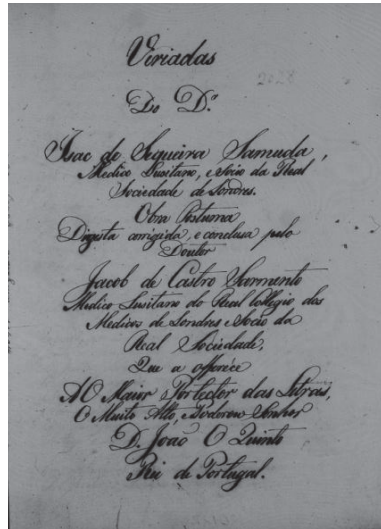 Viriadas
2028
Do D.ʳ
Isac de Sequeira Samuda,
Medico Lusitano, e Socio da Real
Sociedade de Londres.
Obra Postuma
Digesta corrigida, e conclusa pelo
Doutor
Jacob de Castro Sarmento
Medico Lusitano do Real Collegio dos
Medicos de Londres e Socio da
Real Sociedade,
Que a offerece
AO Maior Portector das Letras,
O Muito Alto, e Poderozo Senhor
D. João O Quinto
Rei de Portugal.